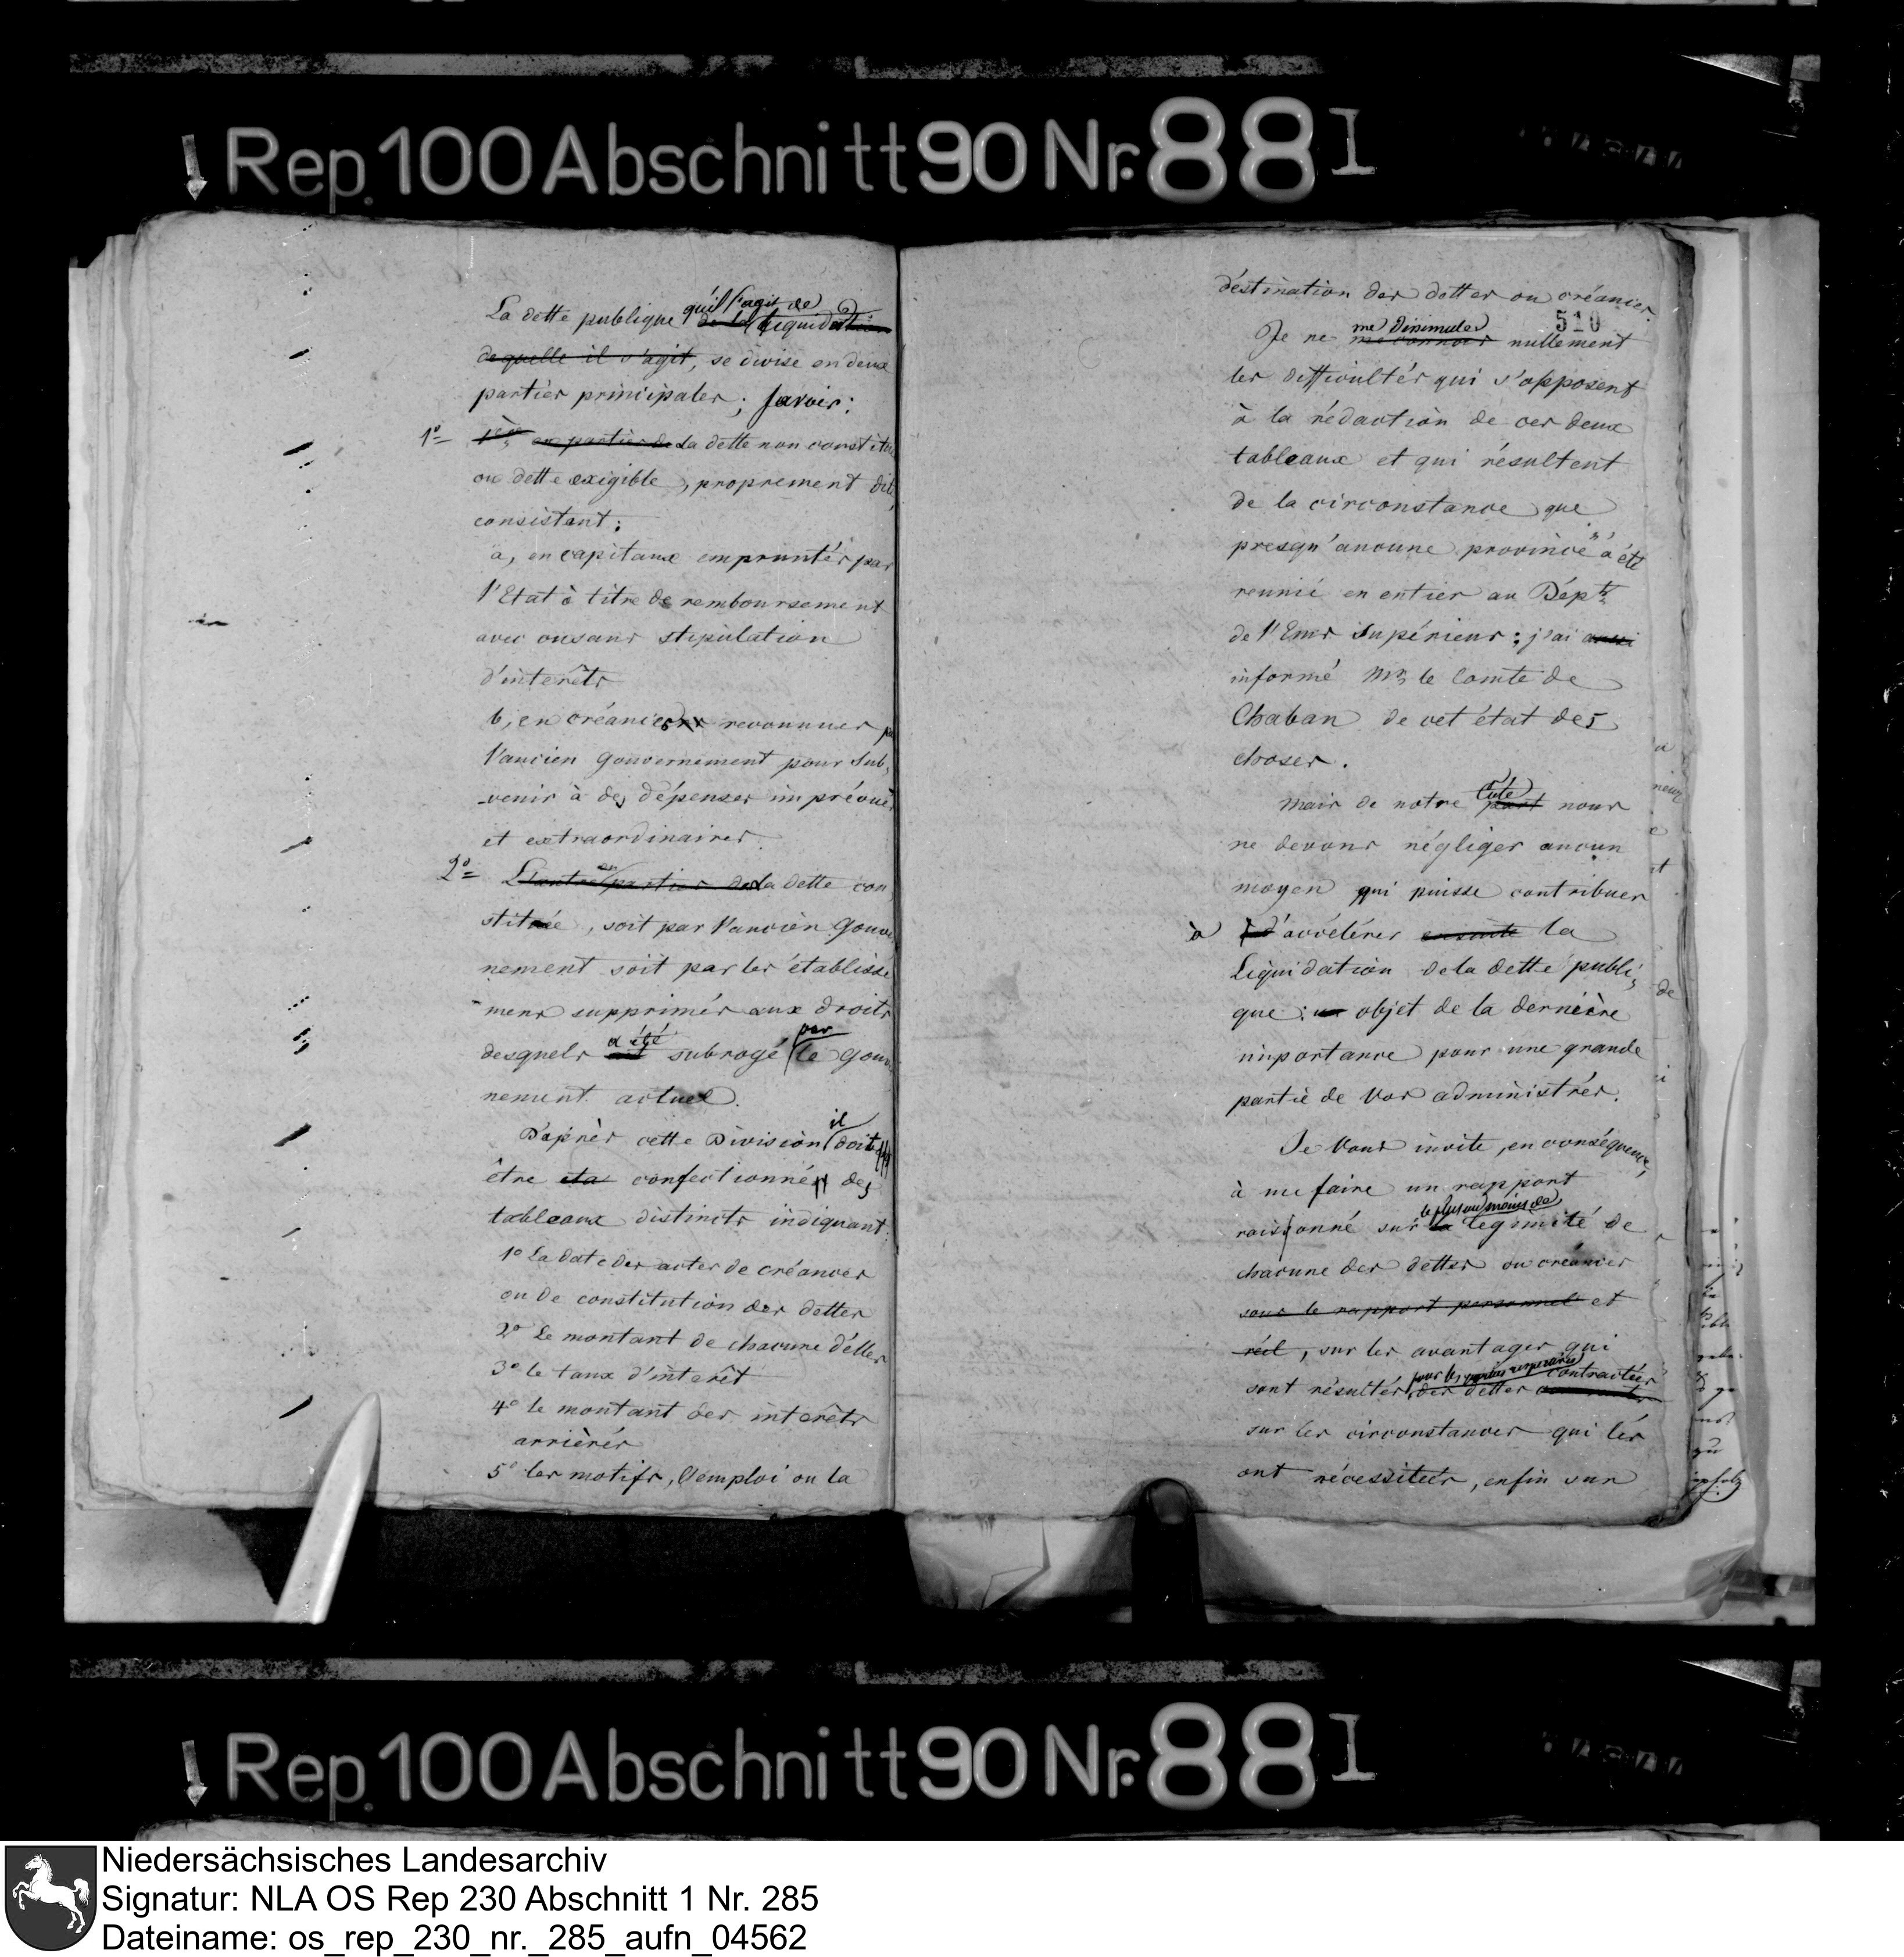 Rep. 100 Abschnitt 90 Nr. 88 I
La dette publique qu'il s'agit de de la liquidation
de quelle il s'agit, se divise en deux
parties principales; savoir:
1º 1ère en parties de La dette non constitu
ou dette exigible, proprement dite,
consistant:
a, en capitaux empruntés par
l'Etat à titre de remboursement
avec ou sans stipulation
d'interêts
b, en créances reconnues pa
l'ancien Gouvernement pour sub,
-venir à des dépenses imprévues
et extraordinaires.
2º L'autre en parties de La dette con
stituée, soit par l'ancien Gouve
nement soit par les établisse
mens supprimés aux droits
desquels a été est subrogé par le Gouv
nement actuel.
D'après cette Division il doit
être confectionné des
tableaux distincts indiquant:
1º La date des actes de créances
ou de constitution des dettes
2º Le montant de chacune d'elles
3º le taux d'interêt
4º le montant des interêts
arrièrés
5º les motifs, l'emploi ou la
déstination des dettes ou créances.
510
Je ne me dissimules nullement
les difficultés qui s'opposent
à la rédaction de ces deux
tableaux et qui résultent
de la circonstance que
presqu'aucune province n'a été
reunie en entier au Dépt.
de l'Ems Supérieur; j'ai aussi
informé Mr. le Comte de
Chaban de cet état des
choses.
Mais de notre Côté part nous
ne devons négliger aucun
moyen qui puisse contribuer
à d'accélérer ensuite la
Liquidation de la dette publi,
que: un objet de la dernière
importance pour une grande
partie de Vos administrés.
Je Vous invite, en conséquence,
à me faire un rapport
raisonné sur le plus ou moins de la legimité de
chacune des dettes ou créances
sous le rapport personnel et
réel, sur les avantages qui
sont résultés pour les parties respectives des dettes contractées
sur les circonstances qui les
ont nécessitées, enfin sur
Rep. 100 Abschnitt 90 Nr. 88 I
Niedersächsisches Landesarchiv
Signatur: NLA OS Rep 230 Abschnitt 1 Nr. 285
Dateiname: os_rep_230_nr._285_aufn_04562